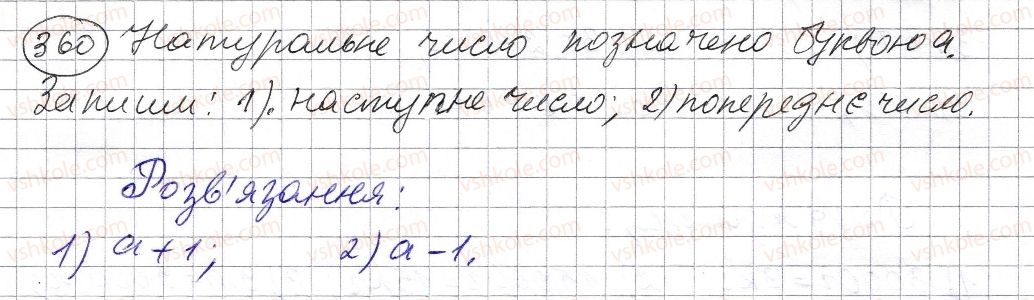 360 Натуральне число позначено буквою a.
Запиши: 1). наступне число; 2) попереднє число.
Розв'язання:
1) a + 1; 2) a - 1.